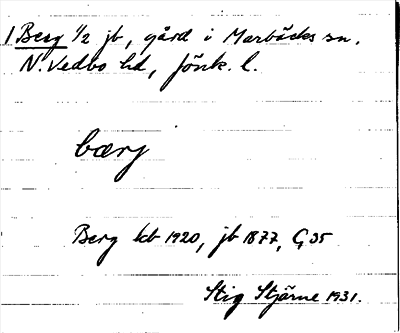 1 Berg 1/2 jb, gård i Marbäcks sn.
N. Vedbo hd, Jönk. l.
bærj
Berg kb 1920, jb 1877, G 35
Stig Stjärne 1931.